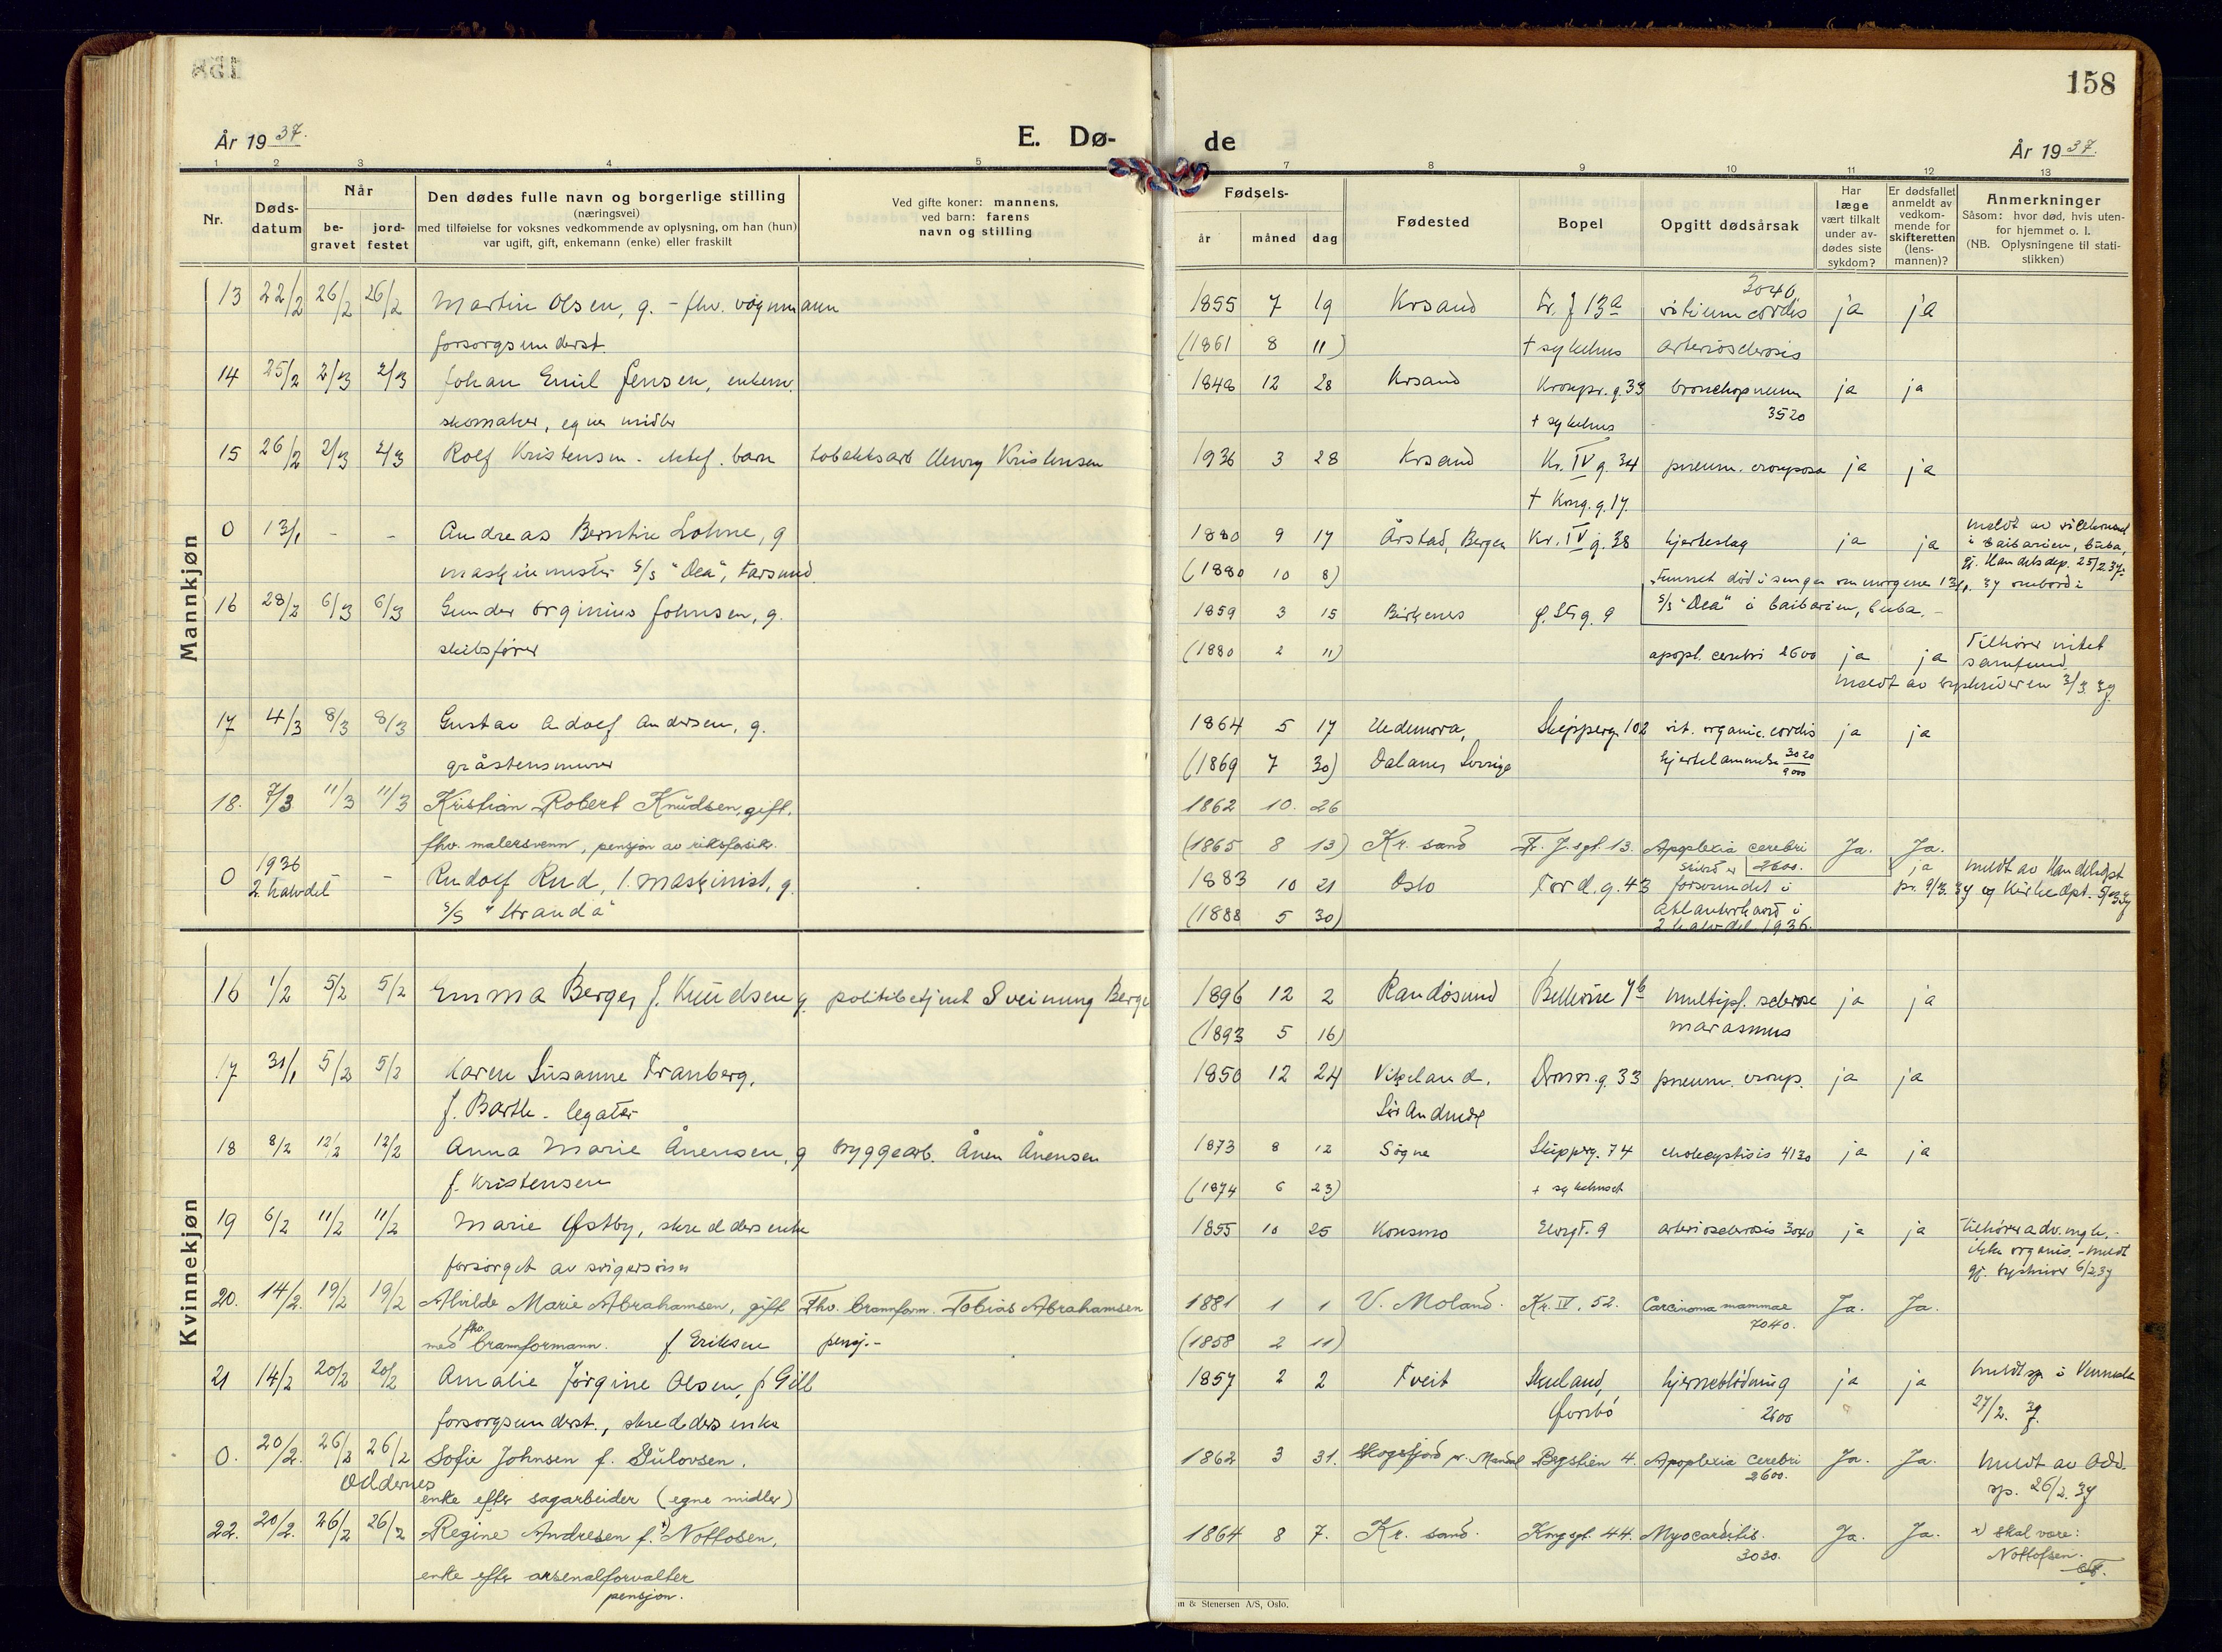 158
År 1937.
E. Dø-
de
År 1937.
1 2 3 4 5 7 8 9 10 11 12 13
Nr.
Døds-
datum
Når
be-
gravet
jord-
festet
Den dødes fulle navn og borgerlige stilling
(næringsvei)
med tilføielse for voksnes vedkommende av oplysning, om han (hun)
var ugift, gift, enkemann (enke) eller fraskilt
Ved gifte koner: mannens,
ved barn: farens
navn og stilling
Fødsels-
år måned dag
Fødested
Bopel
Opgitt dødsårsak
Har
læge
vært tilkalt
under av-
dødes siste
sykdom?
Er dødsfallet
anmeldt av
vedkom-
mende for
skifteretten
(lens-
mannen)?
Anmerkninger
Såsom: hvor død, hvis uten-
for hjemmet o. l.
(NB. Oplysningene til stati-
stikken)
Mannkjøn
3040
13 22/2 26/2 26/2 Martin Olsen, g. - fhv. vognmann 1855 7 19 Krsand Fr. J 13a vitium cordis ja ja
forsorgsunderst. (1861 8 11) † sykehus arteriosclerosis
14 25/2 2/3 2/3 Johan Emil Jensen, enkem. 1848 12 28 Krsand Kronpr.g. 33 bronchopneum ja ja
skomaker, egne midler + sykehus 3520
15 26/2 2/3 2/3 Rolf Kristensen - ektef. barn tobakksarb Henry Kristensen 1936 3 28 Krsand Kr. IV g. 34 pneum. crouposa ja ja
† Kong.g. 17.
0 13/1 - - Andreas Berntin Lohne, g 1880 9 17 Årstad, Bergen Kr. IV g. 38 hjerteslag ja ja meldt av
i Caibarien, Cuba,
maskinmester s/s "Dea", Farsund. (1880 10 8) gj. Handelsdep. 25/2 37.
Funnet død i sengen om morgenen 13/1. 37 ombord i
s/s "Dea" i Caibarien, Cuba. -
16 28/2 6/3 6/3 Gunder Orginius Johnsen, g. 1859 3 15 Birkenes Ø. St. g. 9
skibsfører (1880 2 11) apopl. cerebri 2600 ja ja Tilhører intet
samfund.
meldt av byskriveren 3/3 37.
17 4/3 8/3 8/3 Gustav Adolf Andersen, g. 1864 5 17 Hedemora, Skipperg. 102 vit. organic. cordis ja ja
gråstensmurer (1869 7 30) Dalane, Sverige hjertelammelse 3020
9000
18. 7/3 11/3 11/3 Kristian Robert Knudsen, gift. 1862 10. 26
fhv. malersvenn, pensjon av (1865 8 13) Kr. sand Fr. J.sgt. 13. Apoplexia cerebri Ja. Ja.
2600.
0 1936
2. halvdel - Rudolf Rud, 1. maskinist, g. 1883 10 21 Oslo Tord. g. 43 forsvundet i ja meldt av Handelsdpt
pr. 9/3. 37 og Kirkedpt.
s/s "Stranda" (1888 5 30) Atlanterhavet i
2 halvdel 1936.
Kvinnekjøn
16 1/2 5/2 5/2 Emma Berge, f. Knudsen g. politibetjent Sveinung Berge 1896 12 2 Randøsund Bellevue 7b multipl. sclerose ja ja
(1893 5 16) marasmus
17 31/1 5/2 5/2 Karen Susanne Tranberg, 1850 12 24 Vigeland, Dronn.g. 33 pneum. croup. ja ja
f. Barth - legater Sør Audnedal
18 8/2 12/2 12/2 Anna Marie Ånensen, g bryggearb. Ånen Ånensen 1873 8 12 Søgne Skipperg. 74 cholecystisis 4130 ja ja
f. Kristensen (1874 6 23) + sykehuset
19 6/2 11/2 11/2 Marie Østby, skreddersenke 1855 10 25 Konsmo Elvegt. 9 arteriosclerosis 3040 ja ja tilhører adv. mgh. -
ikke organis. - meldt
forsørget av svigersønn gj. byskriver 6/2 37
20. 14/2. 19/2 19/2 Alvilde Marie Abrahamsen, gift Fhv. brannform. Tobias Abrahamsen 1881 1 1 V. Moland. Kr. IV. 52. Carcinoma mammae Ja. Ja.
7040.
med fhv. brannformann. f. Eriksen pensj. - (1858 2 11)
21 14/2 20/2 20/2 Amalie Jørgine Olsen, f Gill 1857 2 2 Tveit Skuland, hjerneblødning ja ja meldt sp i Vennesla
forsorgsunderst., skreddersenke Øvrebø 2600 27/2. 37.
0. 20/2. 26/2 26/2 Sofie Johnsen f. Gulovsen. 1862 3 31. Skogsfjord pr. Mandal Bergstien 4. Apoplexia cerebri Ja. Ja. meldt av Odd.
2600. sp. 26/2. 37
Oddernes enke efter sagarbeider (egne midler)
22. 20/2. 26/2 26/2 Regine Andresen f. x) Nottosen, 1864 8 7. Kr. sand. Kongsgt. 44. Myocarditis. Ja. Ja. x) skal være:
3030. Nottofsen.
enke efter arsenalforvalter
pensjon.
& Stenersen A/S, Oslo.